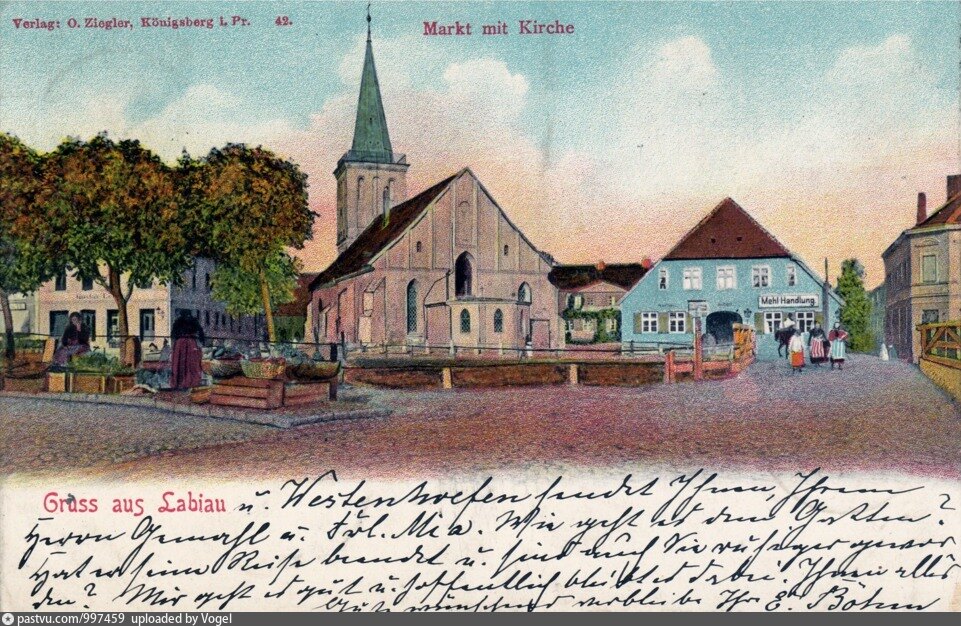 Verlag: O. Ziegler, Königsberg i. Pr. 42.
Markt mit Kirche
Mehl Handlung
Gruss aus Labiau u. Westentwefen sendet Ihnen, Ihrem
Herrn Gemahl u. Frl. Mia. Wie geht es dem Gatten?
Hat er seine Reise beendet u. sind auch Sie ruhiger gewor
den? Mir geht es gut u. hoffentlich bleibt es dabei. Ihnen alles
Gute wünschend verbleibe Ihr E. Böhm
pastvu.com/997459 uploaded by Vogel